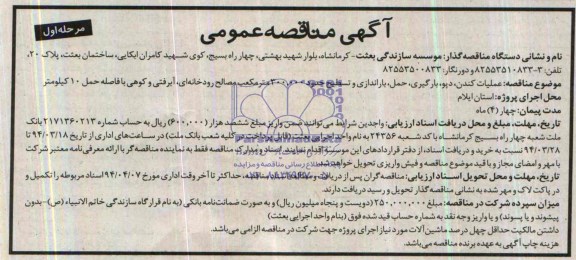 آگهی مناقصه عمومی
مرحله اول
نام و نشانی دستگاه مناقصه‌گذار: موسسه سازندگی بعثت - کرمانشاه، بلوار شهید بهشتی، چهار راه بسیج، کوی شهید کامران ابکایی، ساختمان بعثت، پلاک ۲۰،
تلفن: ۳-۸۲۵۵۳۵۱۰۸۳۳ و دورنگار: ۸۲۵۵۳۵۰۰۸۳۳
موضوع مناقصه: عملیات کندن، دپو، بارگیری، حمل، باراندازی و تسطیح مترمکعب مصالح رودخانه‌ای، آبرفتی و کوهی با فاصله حمل ۱۰ کیلومتر
محل اجرای پروژه: استان ایلام
مدت پیمان: چهار (۴) ماه
تاریخ، مهلت، مبلغ و محل دریافت اسناد ارزیابی: واجدین شرایط می‌توانند ضمن واریز مبلغ ششصد هزار (۶۰۰,۰۰۰) ریال به حساب شماره ۲۱۷۱۳۶۰۲۱۳ بانک
ملت شعبه چهار راه بسیج کرمانشاه با کد شعبه ۲۴۳۵۶ به نام واحد اجرایی بعثت (قابل پرداخت در کلیه شعب بانک ملت) در ساعت‌های اداری از تاریخ ۹۴/۰۳/۱۸ تا
۹۴/۰۳/۲۸ نسبت به خرید و دریافت اسناد، از دفتر قراردادهای این موسسه اقدام نمایند. اسناد و مدارک مناقصه فقط به نماینده مناقصه‌گر با ارائه معرفی‌نامه معتبر شرکت
با مهر و امضای مجاز و با قید موضوع مناقصه و فیش واریزی تحویل خواهد شد.
تاریخ، مهلت و محل تحویل اسناد ارزیابی: مناقصه‌گران پس از دریافت و مطالعه اسناد مناقصه، حداکثر تا آخر وقت اداری مورخ ۹۴/۰۴/۰۷ اسناد مربوطه را تکمیل و
در پاکت لاک و مهر شده به نشانی مناقصه‌گذار تحویل و رسید دریافت دارند.
میزان سپرده شرکت در مناقصه: مبلغ ۲۵۰,۰۰۰,۰۰۰ (دویست و پنجاه میلیون ریال) و به صورت ضمانت‌نامه بانکی (به نام قرارگاه سازندگی خاتم الانبیاء (ص) - بدون
پیشوند و یا پسوند) و یا واریز وجه نقد به شماره حساب قید شده فوق (بنام واحد اجرایی بعثت)
داشتن مالکیت حداقل چهل درصد ماشین‌آلات مورد نیاز اجرای پروژه جهت شرکت در مناقصه الزامی می‌باشد.
هزینه چاپ آگهی به عهده برنده مناقصه می‌باشد.